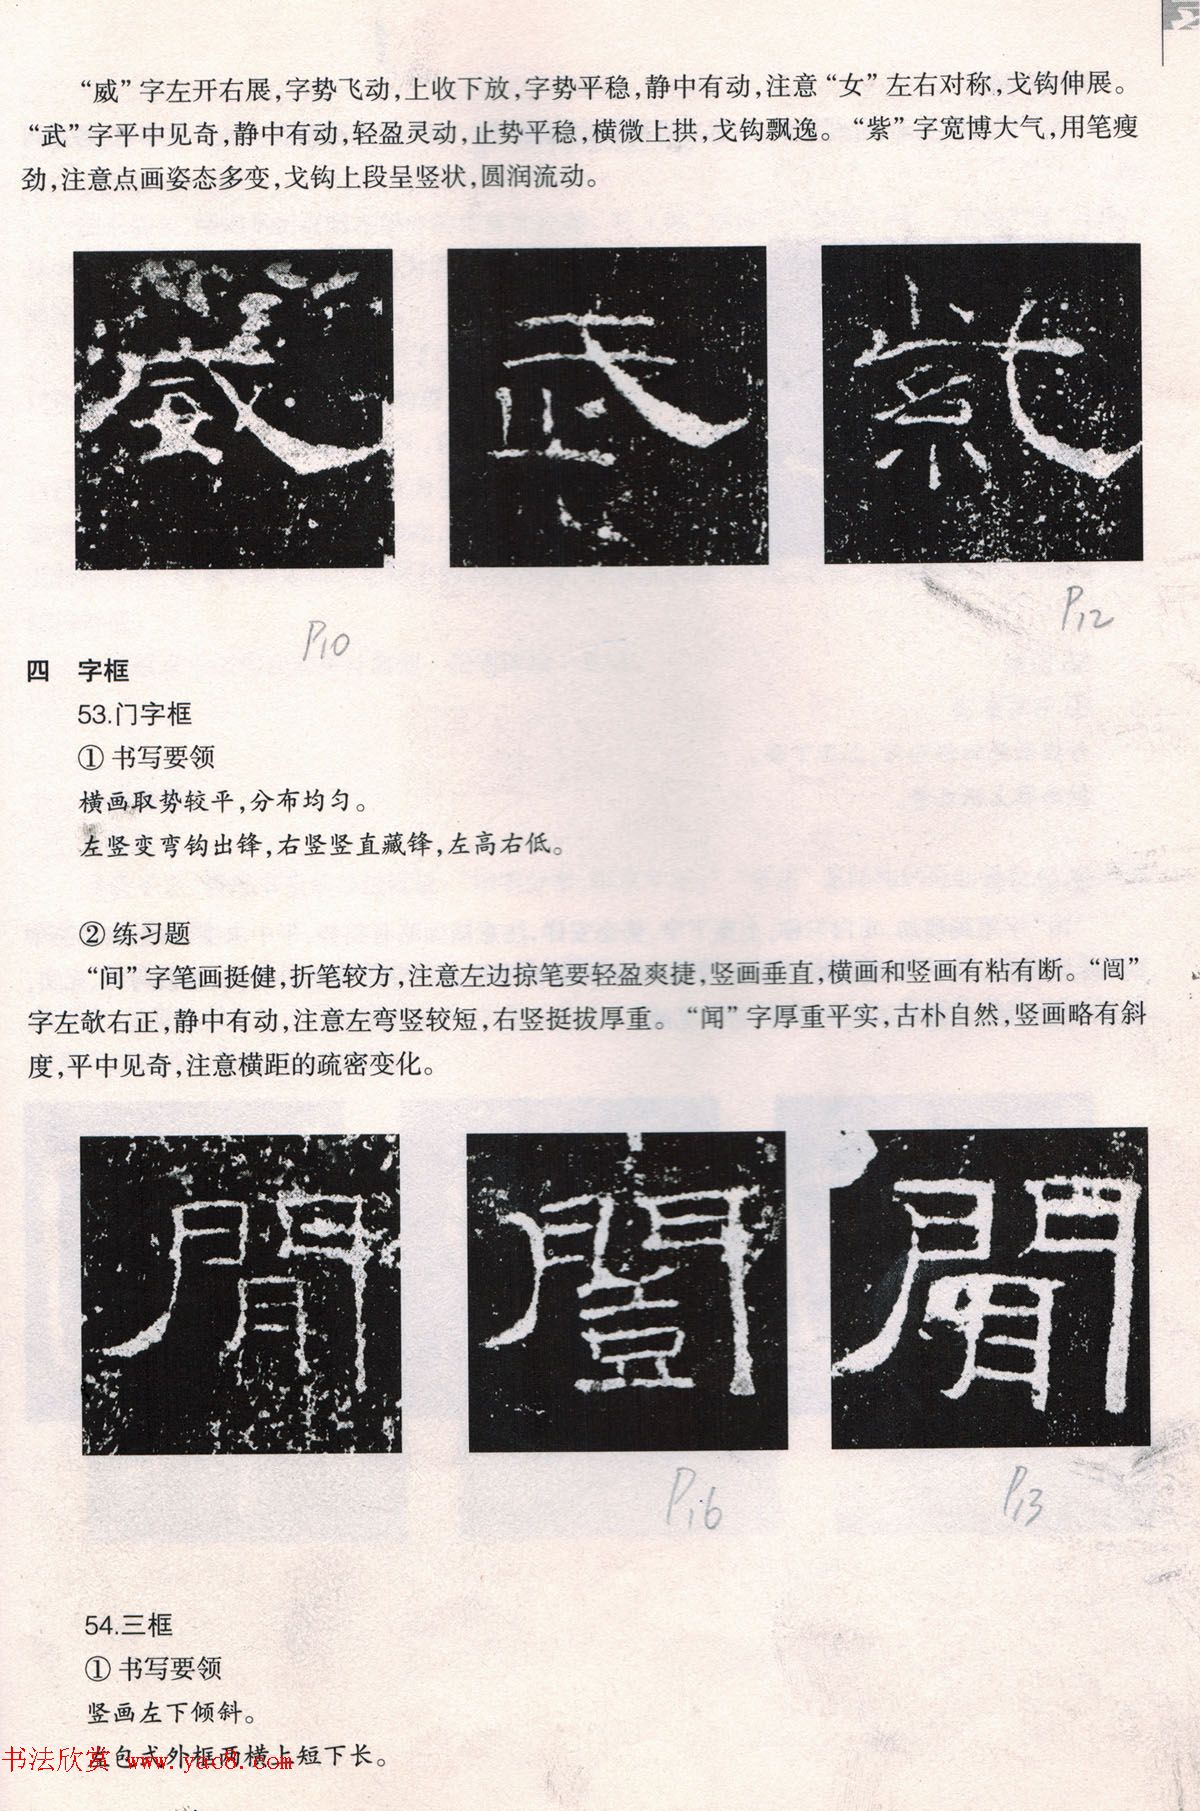 “威”字左开右展,字势飞动,上收下放,字势平稳,静中有动,注意“女”左右对称,戈钩伸展。
“武”字平中见奇,静中有动,轻盈灵动,止势平稳,横微上拱,戈钩飘逸。“紫”字宽博大气,用笔瘦
劲,注意点画姿态多变,戈钩上段呈竖状,圆润流动。
威 武
P10
P12
四 字框
53.门字框
① 书写要领
横画取势较平,分布均匀。
左竖变弯钩出锋,右竖竖直藏锋,左高右低。
② 练习题
“间”字笔画挺健,折笔较方,注意左边掠笔要轻盈爽捷,竖画垂直,横画和竖画有粘有断。“闿”
字左欹右正,静中有动,注意左弯竖较短,右竖挺拔厚重。“闻”字厚重平实,古朴自然,竖画略有斜
度,平中见奇,注意横距的疏密变化。
閒 闓 聞
P16
P13
54.三框
① 书写要领
竖画左下倾斜。
左包式外框两横上短下长。
书法欣赏 www.yac8.com